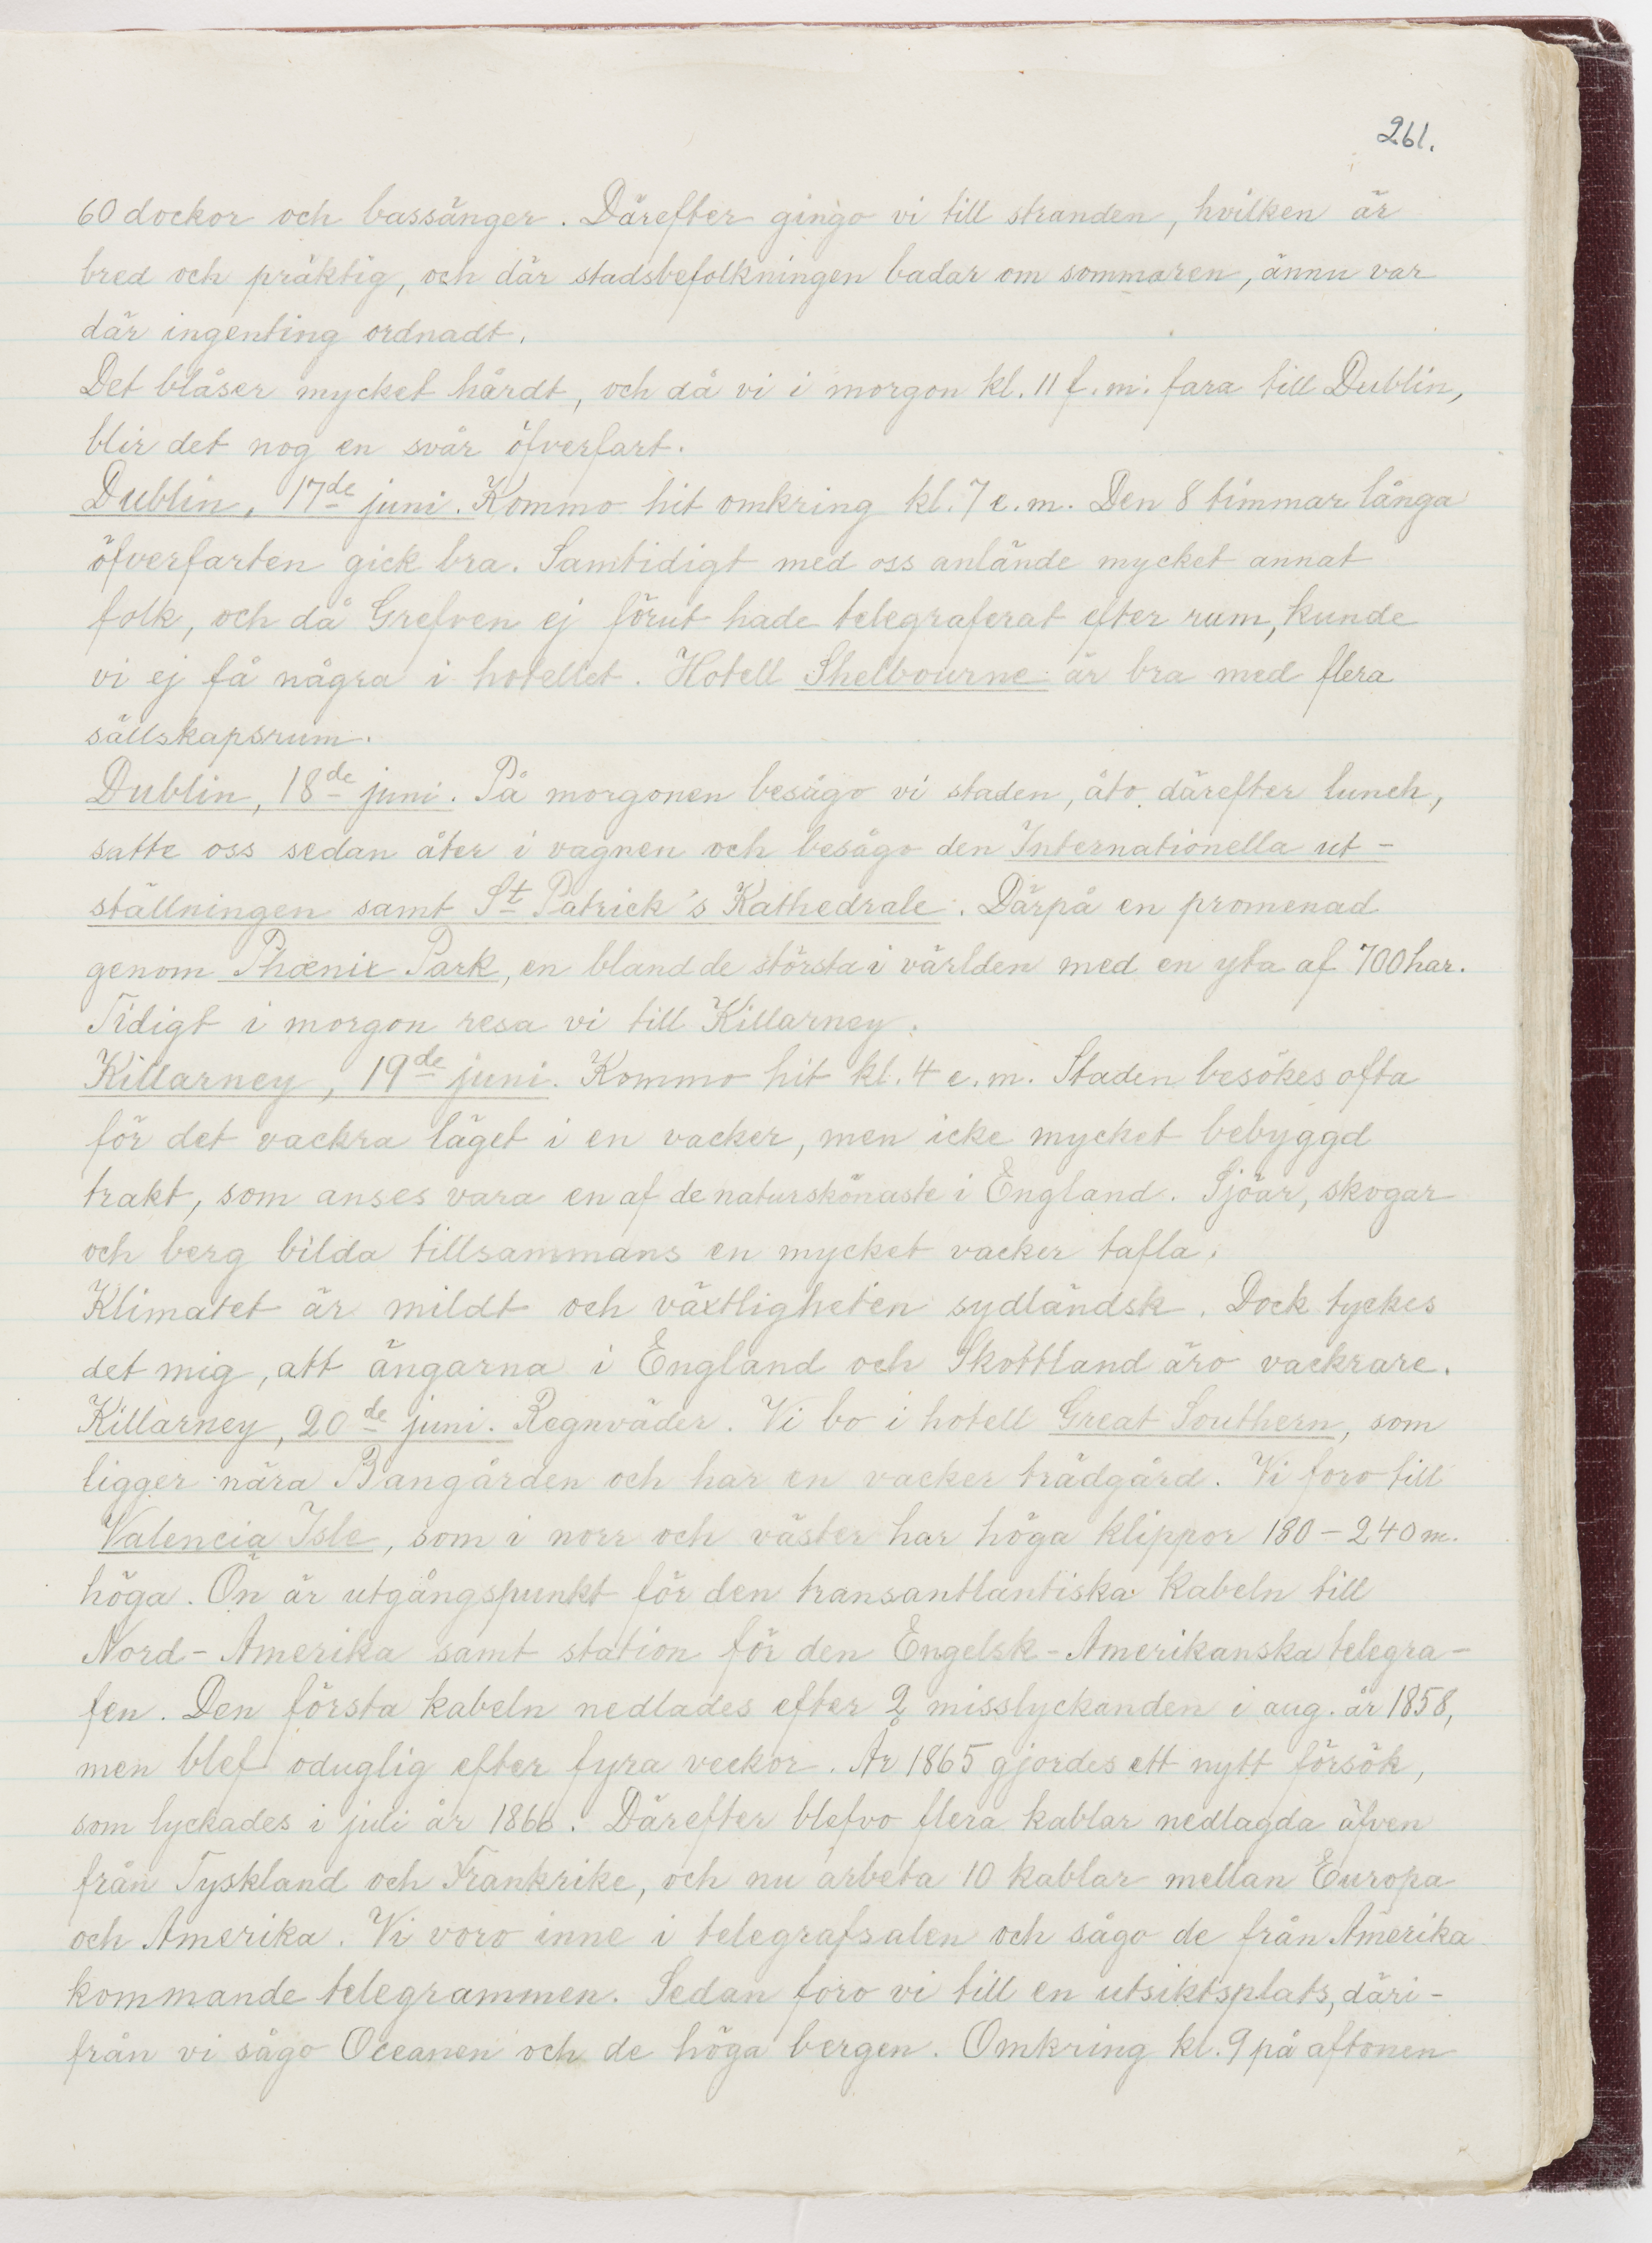 261.
60 dockor och bassänger. Därefter gingo vi till stranden, hvilken är
bred och präktig, och där stadsbefolkningen badar om sommaren, ännu var
där ingenting ordnadt.
Det blåser mycket hårdt, och då vi i morgon kl. 11 f.m. fara till Dublin,
blir det nog en svår öfverfart.
Dublin, 17de juni. Kommo hit omkring kl. 7 e.m. Den 8 timmar långa
öfverfarten gick bra. Samtidigt med oss anlände mycket annat
folk, och då Grefven ej förut hade telegraferat efter rum, kunde
vi ej få några i hotellet. Hotell Shelbourne är bra med flera
sällskapsrum.
Dublin, 18de juni. På morgonen besågo vi staden, åto därefter lunch,
satte oss sedan åter i vagnen och besågo den Internationella ut-
ställningen samt St Patrick's Kathedrale. Därpå en promenad
genom Phœnix Park, en bland de största i världen med en yta af 700 har.
Tidigt i morgon resa vi till Killarney.
Killarney, 19de juni. Kommo hit kl. 4 e.m. Staden besökes ofta
för det vackra läget i en vacker, men icke mycket bebyggd
trakt, som anses vara en af de naturskönaste i England. Sjöar, skogar
och berg bilda tillsammans en mycket vacker tafla.
Klimatet är mildt och växtligheten sydländsk. Dock tyckes
det mig, att ängarna i England och Skottland äro vackrare.
Killarney, 20de juni. Regnväder. Vi bo i hotell Great Southern, som
ligger nära Bangården och har en vacker trädgård. Vi foro till
Valencia Isle, som i norr och väster har höga klippor 180-240 m.
höga. Ön är utgångspunkt för den transantlantiska kabeln till
Nord-Amerika samt station för den Engelsk-Amerikanska telegra-
fen. Den första kabeln nedlades efter 2 misslyckanden i aug. år 1858,
men blef oduglig efter fyra veckor. År 1865 gjordes ett nytt försök,
som lyckades i juli år 1866. Därefter blefvo flera kablar nedlagda äfven
från Tyskland och Frankrike, och nu arbeta 10 kablar mellan Europa
och Amerika. Vi voro inne i telegrafsalen och sågo de från Amerika
kommande telegrammen. Sedan foro vi till en utsiktsplats, däri-
från vi sågo Oceanen och de höga bergen. Omkring kl. 9 på aftonen